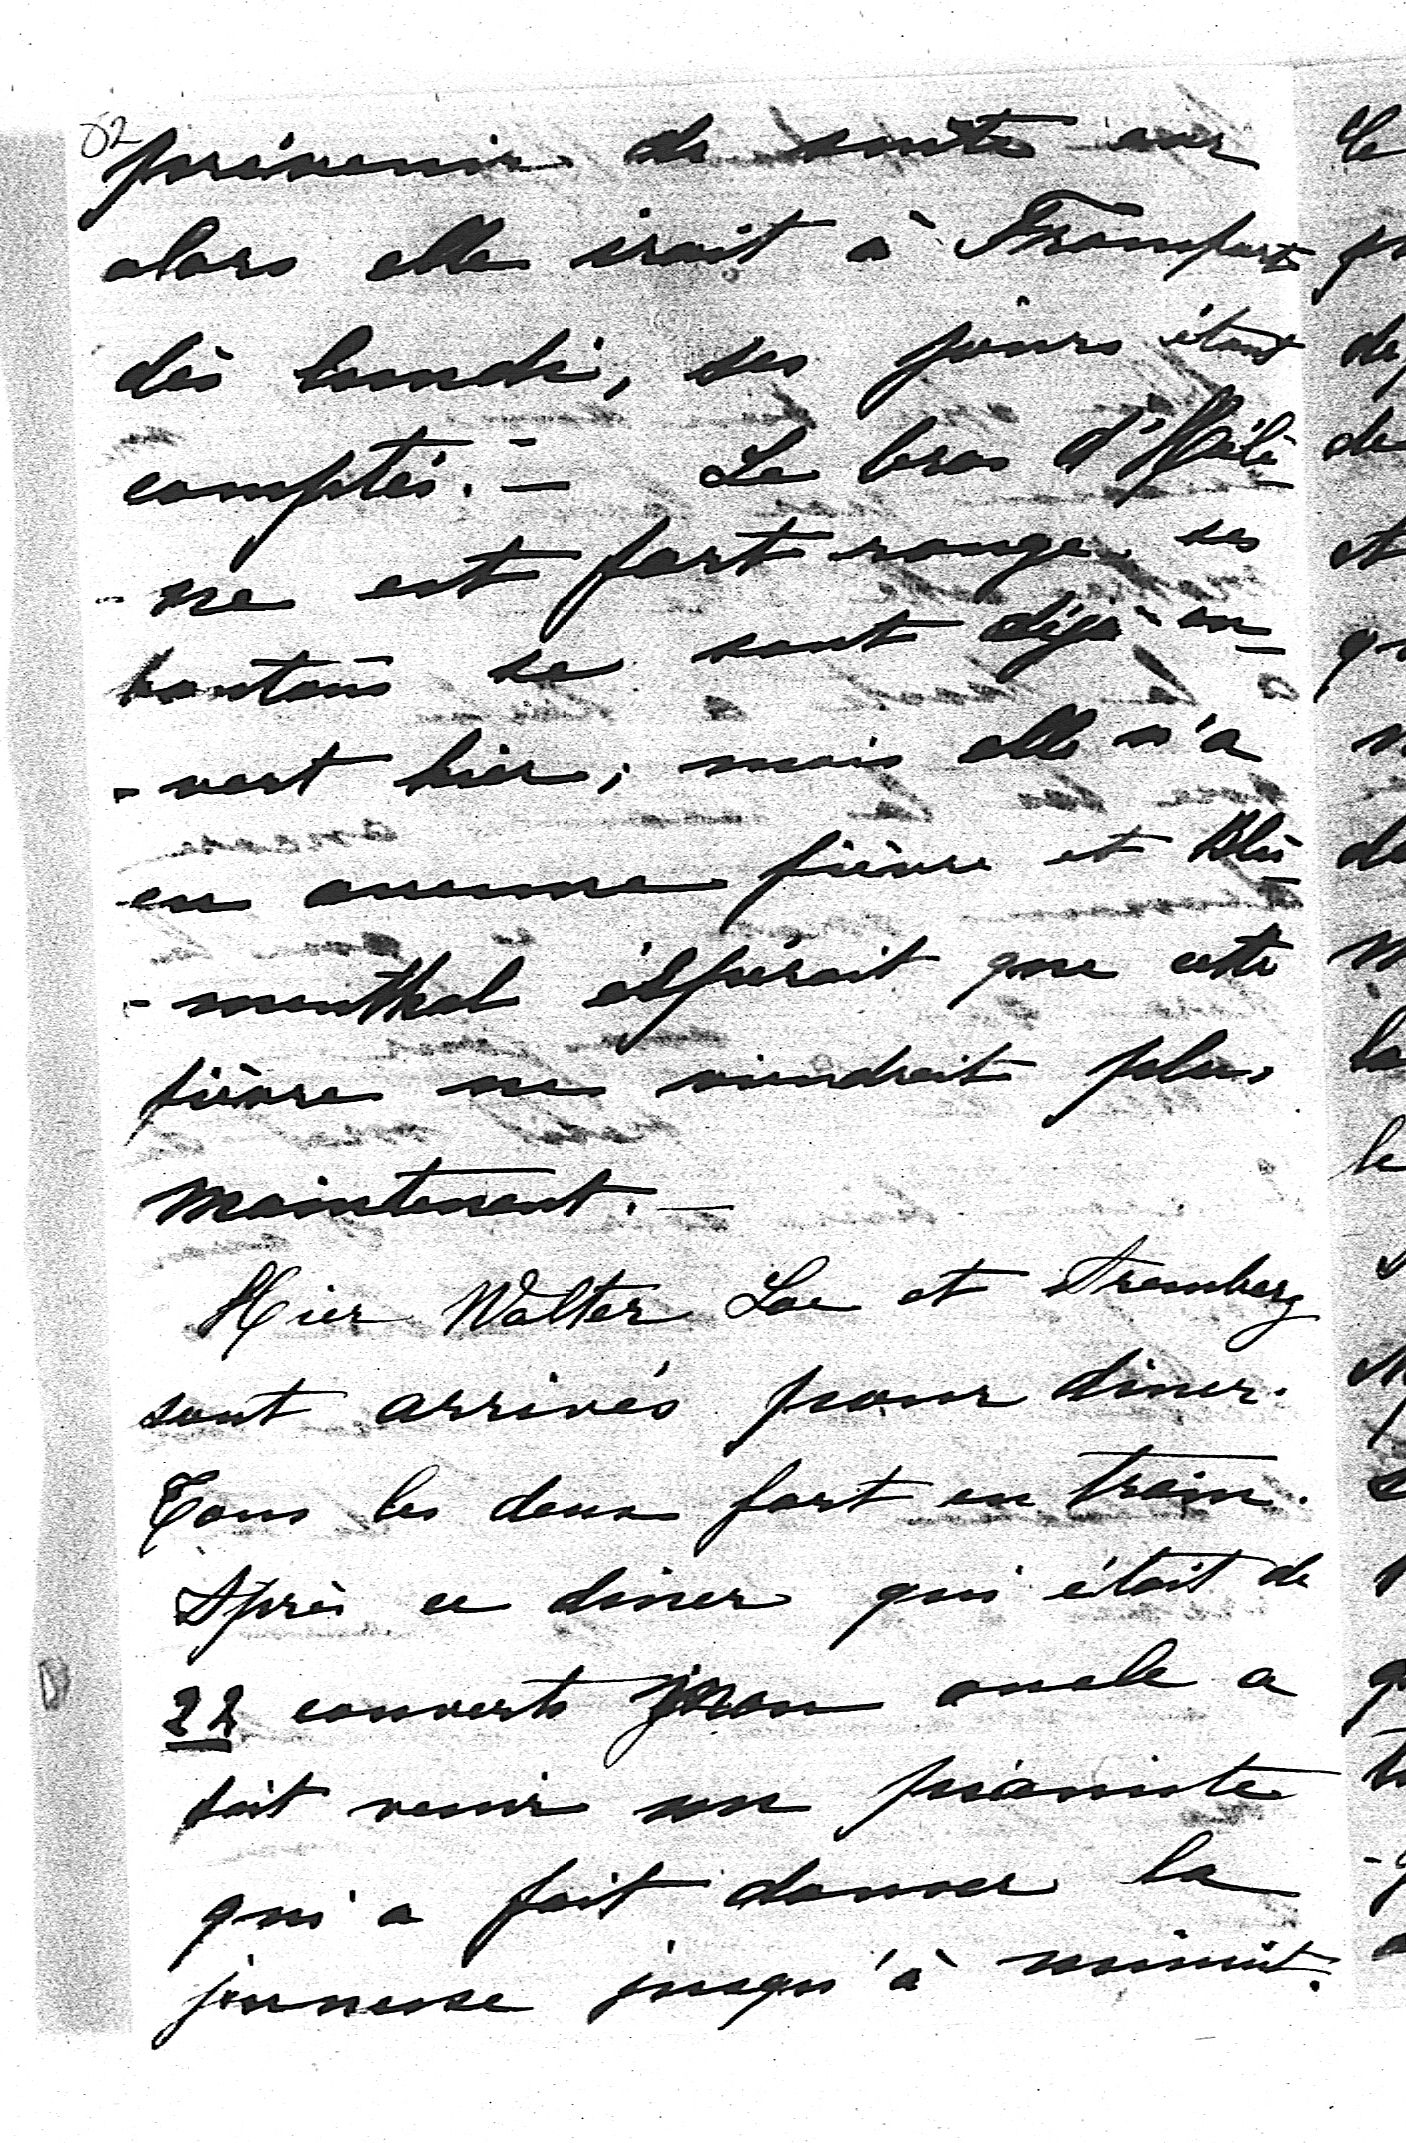 52
prévenir de suite car
alors elle irait à Francfort
dès lundi, ses jours étant
comptés. — Le bras d'Hélè
- ne est fort rouge. ses
boutons se sont déjà ou
- vert hier; mais elle n'a
eu aucune fièvre et Blu
- menthal éspérait que cette
fièvre ne viendrait plus
maintenant. —
Hier Walter Loe et Stremberg
sont arrivés pour diner.
Tous les deux fort en train.
Après ce diner qui était de
22 couverts mon oncle a
fait venir un pianiste
qui a fait danser la
jeunesse jusqu'à minuit.